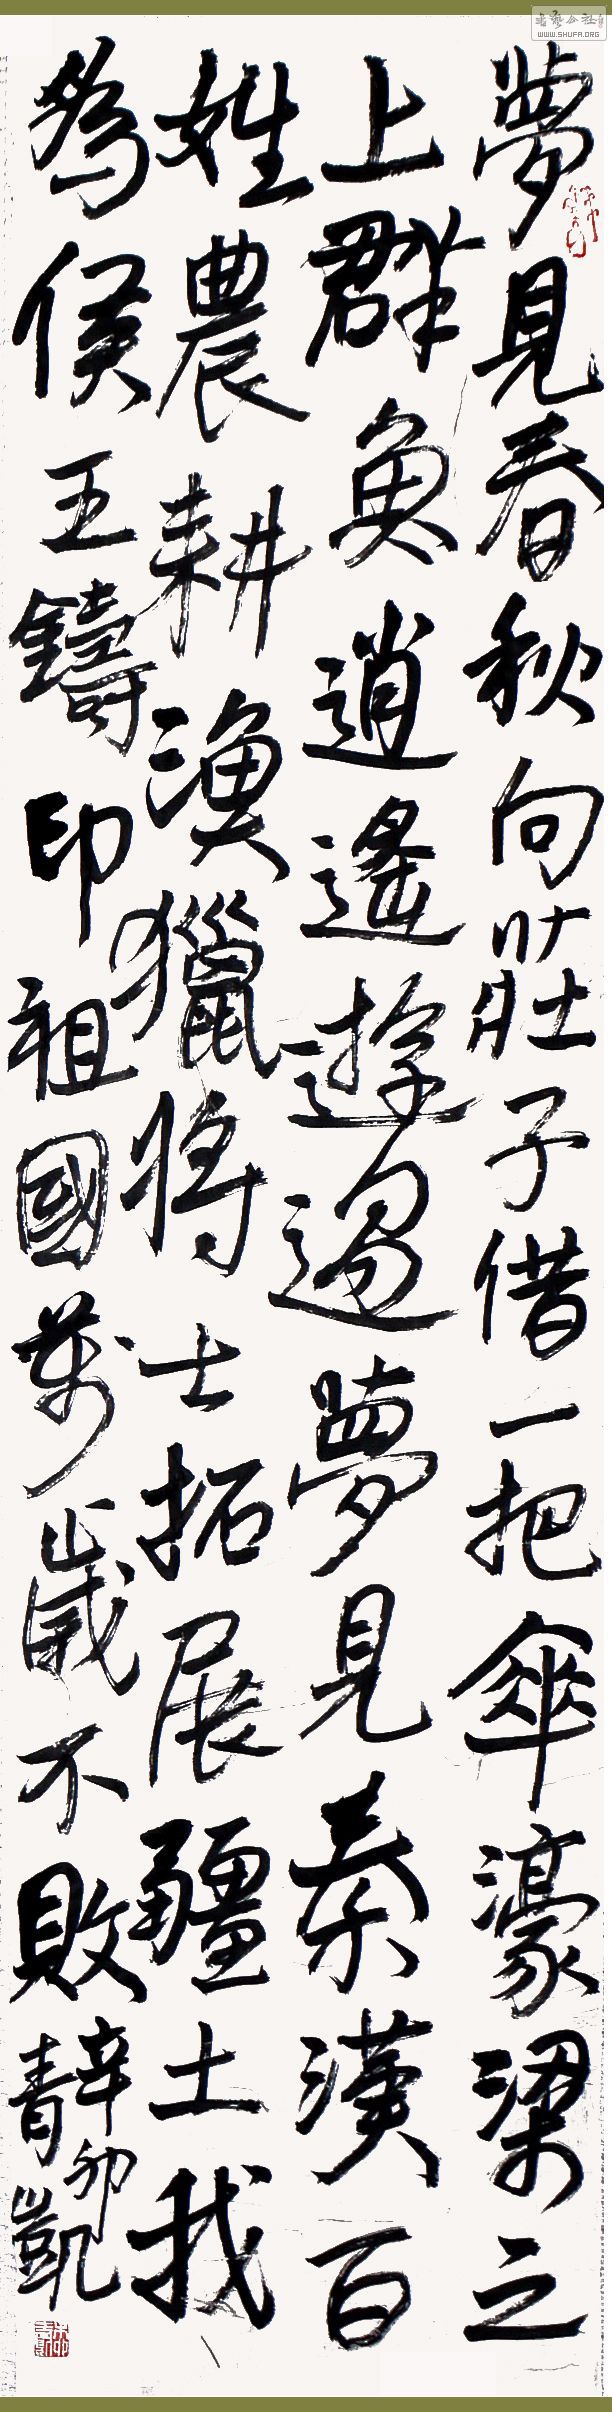 夢見春秋向莊子借一把傘濠梁之
上群魚逍遙遊過夢見秦漢百
姓農耕漁獵將士拓展疆土我
為侯王鑄印祖國萬歲不敗
辛卯
青凱
WWW.SHUFA.ORG